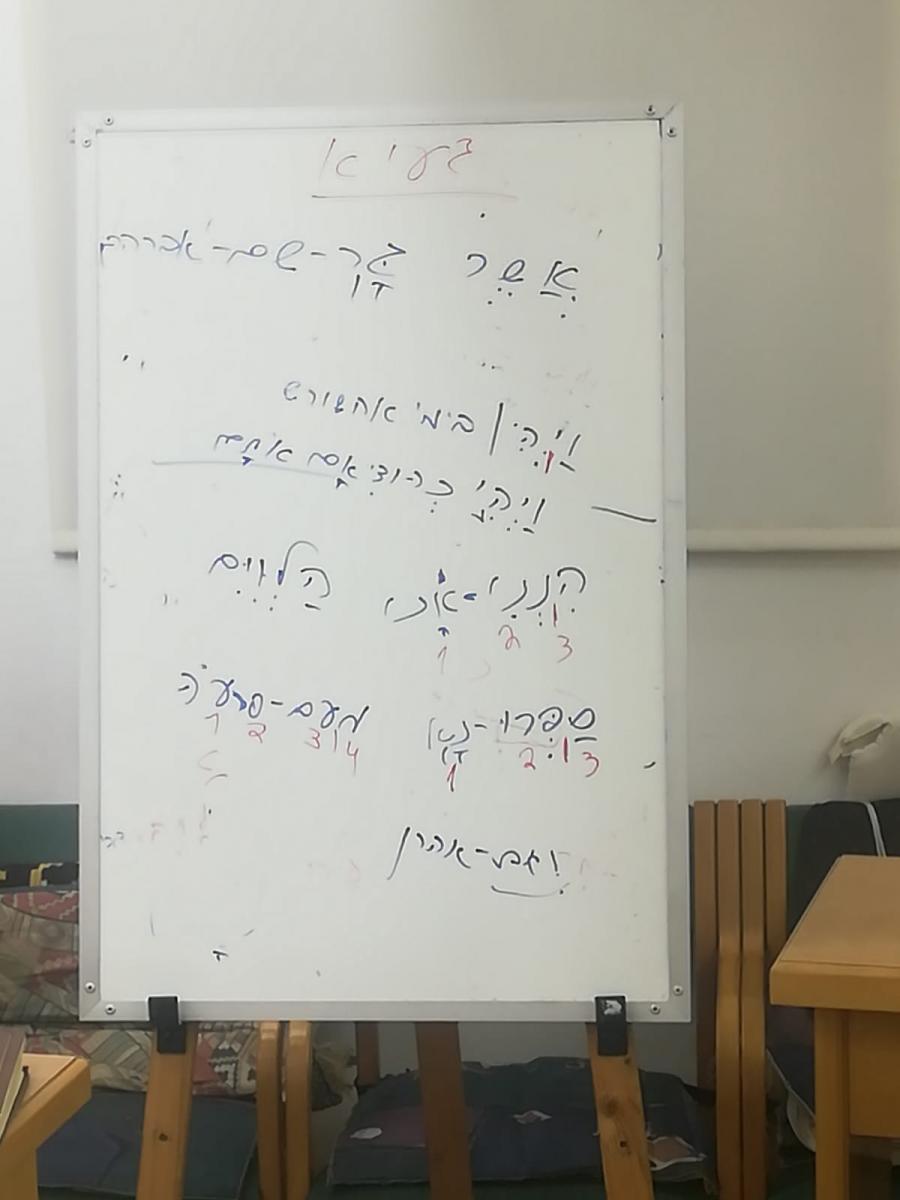 געיא
אֲשֶׁר גָּר-שם-אברהם
וַיְהִי | בימי אחשורש
וַיְהִי כְּהוֹצִיאָם אֹתָם
הִנְנִי-אָני הַלְוִיִּם
1 2 3
סַפְּרוּ-נָא מֵעִם-פרעֹה
1 2 3 4 1 2 3
וגם-אהרן